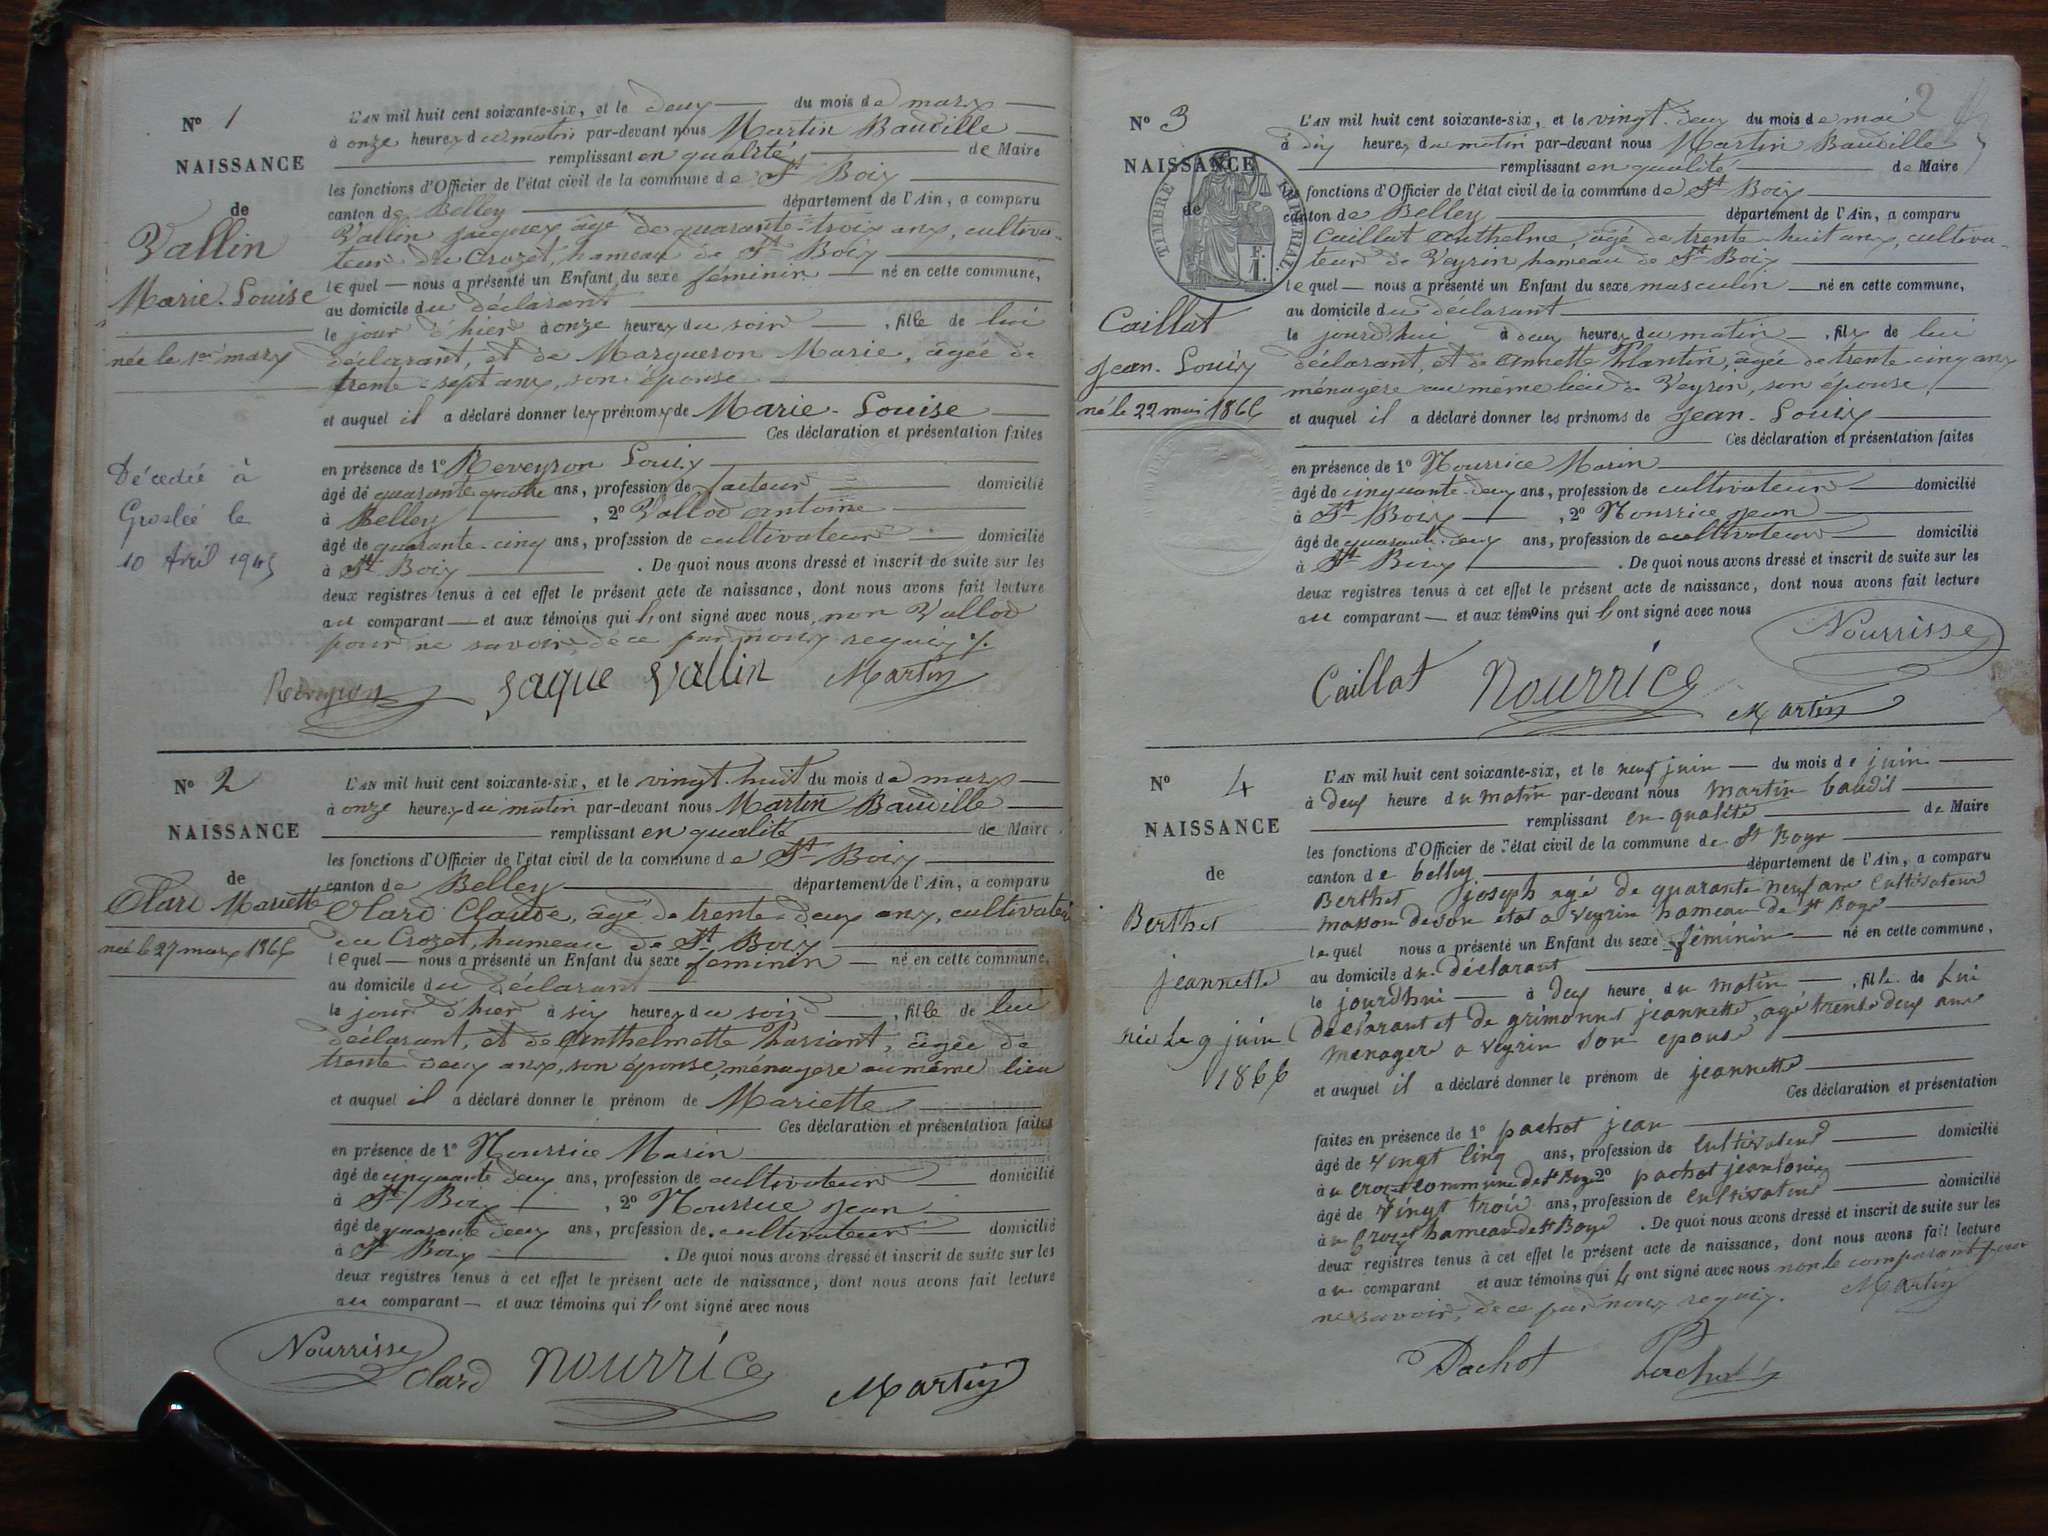 N° 1
NAISSANCE
de
Vallin
Marie-Louise
née le 1er mars
Décédée à
Groslée le
10 Avril 1945
L'AN mil huit cent soixante-six, et le deux du mois de mars
à onze heures du matin par-devant nous Martin Baudille
remplissant en qualité de Maire
les fonctions d'Officier de l'état civil de la commune de St Boix
canton de Belley département de l'Ain, a comparu
Vallin Jacques âgé de quarante-trois ans, cultiva-
teur du Crozet, hameau de St Boix
lequel nous a présenté un Enfant du sexe féminin né en cette commune,
au domicile du déclarant
le jour d'hier à onze heures du soir, fille de lui
déclarant, et de Marqueron Marie, âgée de
trente-sept ans, son épouse
et auquel il a déclaré donner les prénoms de Marie-Louise
Ces déclaration et présentation faites
en présence de 1° Reveyron Louis
âgé de quarante quatre ans, profession de facteur domicilié
à Belley, 2° Vallod Antoine
âgé de quarante-cinq ans, profession de cultivateur domicilié
à St Boix. De quoi nous avons dressé et inscrit de suite sur les
deux registres tenus à cet effet le présent acte de naissance, dont nous avons fait lecture
au comparant et aux témoins qui l'ont signé avec nous, non Vallod
pour ne savoir, de ce par nous requis ./.
Reveyron Jaque Vallin Martin
N° 2
NAISSANCE
de
Clard Mariette
née le 27 mars 1866
L'AN mil huit cent soixante-six, et le vingt-huit du mois de mars
à onze heures du matin par-devant nous Martin Baudille
remplissant en qualité de Maire
les fonctions d'Officier de l'état civil de la commune de St Boix
canton de Belley département de l'Ain, a comparu
Clard Claude, âgé de trente-deux ans, cultivateur
du Crozet, hameau de St Boix
lequel nous a présenté un Enfant du sexe féminin né en cette commune,
au domicile du déclarant
le jour d'hier à six heures du soir, fille de lui
déclarant, et de Anthelmette, âgée de
trente deux ans, son épouse, ménagère au même lieu
et auquel il a déclaré donner le prénom de Mariette
Ces déclaration et présentation faites
en présence de 1° Nourrice Marin
âgé de cinquante deux ans, profession de cultivateur domicilié
à St Boix, 2° Nourrice Jean
âgé de quarante deux ans, profession de cultivateur domicilié
à St Boix. De quoi nous avons dressé et inscrit de suite sur les
deux registres tenus à cet effet le présent acte de naissance, dont nous avons fait lecture
au comparant et aux témoins qui l'ont signé avec nous
Nourrisse Clard nourrice Martin
2
N° 3
NAISSANCE
de
TIMBRE IMPÉRIAL
F. 1.
Caillat
Jean-Louis
né le 22 mai 1866
L'AN mil huit cent soixante-six, et le vingt-deux du mois de mai
à dix heures du matin par-devant nous Martin Baudille
remplissant en qualité de Maire
les fonctions d'Officier de l'état civil de la commune de St Boix
canton de Belley département de l'Ain, a comparu
Caillat Anthelme, âgé de trente-huit ans, cultiva-
teur de Veyrin hameau de St Boix
lequel nous a présenté un Enfant du sexe masculin né en cette commune,
au domicile du déclarant
le jourd'hui à deux heures du matin, fils de lui
déclarant, et de Annette Plantin, âgée de trente cinq ans
ménagère au même lieu de Veyrin, son épouse
et auquel il a déclaré donner les prénoms de Jean-Louis
Ces déclaration et présentation faites
en présence de 1° Nourrice Marin
âgé de cinquante-deux ans, profession de cultivateur domicilié
à St Boix, 2° Nourrice Jean
âgé de quarante-deux ans, profession de cultivateur domicilié
à St Boix. De quoi nous avons dressé et inscrit de suite sur les
deux registres tenus à cet effet le présent acte de naissance, dont nous avons fait lecture
au comparant et aux témoins qui l'ont signé avec nous
Nourrisse
Caillat nourrice Martin
N° 4
NAISSANCE
de
Berthet
jeannette
née le 9 juin
1866
L'AN mil huit cent soixante-six, et le neuf juin du mois de juin
à deux heure du matin par-devant nous martin baudil
remplissant en qualité de Maire
les fonctions d'Officier de l'état civil de la commune de St Boys
canton de belley département de l'Ain, a comparu
Berthet joseph agé de quarante neuf ans cultivateur
masson de son état a veyrin hameau de St Boys
lequel nous a présenté un Enfant du sexe féminin né en cette commune,
au domicile du déclarant
le jourdhui à deux heure du matin, fille de Lui
declarant et de grimonnet jeannette, agé trente deux ans
menagere a veyrin son epouse
et auquel il a déclaré donner le prénom de jeannette
Ces déclaration et présentation
faites en présence de 1° pachot jean
âgé de vingt cinq ans, profession de cultivateur domicilié
à u crozet commune de St Boys 2° pachot jeantoine
âgé de vingt trois ans, profession de cultivateur domicilié
à u Crozet hameau de St Boys. De quoi nous avons dressé et inscrit de suite sur les
deux registres tenus à cet effet le présent acte de naissance, dont nous avons fait lecture
au comparant et aux témoins qui l'ont signé avec nous non le comparant pour
ne savoir, de ce par nous requis. Martin
Pachot Pachot